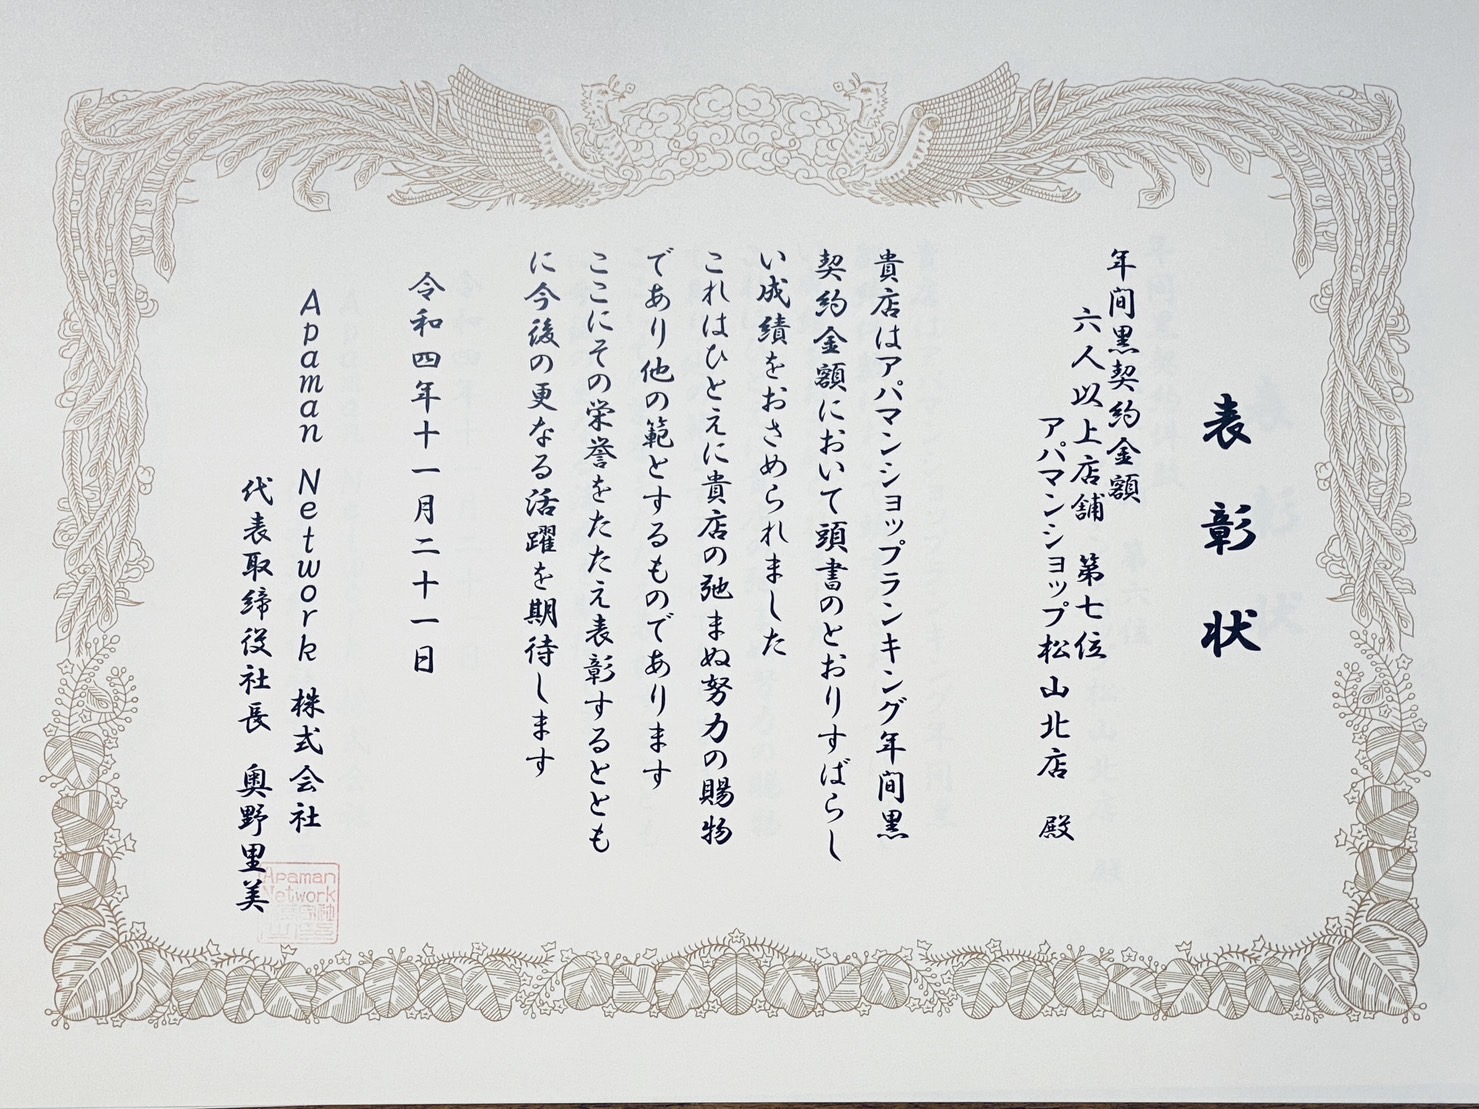 表彰状
年間黒契約金額
六人以上店舗 第七位
アパマンショップ松山北店 殿
貴店はアパマンショップランキング年間黒
契約金額において頭書のとおりすばらし
い成績をおさめられました
これはひとえに貴店の弛まぬ努力の賜物
であり他の範とするものであります
ここにその栄誉をたたえ表彰するととも
に今後の更なる活躍を期待します
令和四年十一月二十一日
Apaman Network 株式会社
代表取締役社長 奥野里美
Apaman
Network